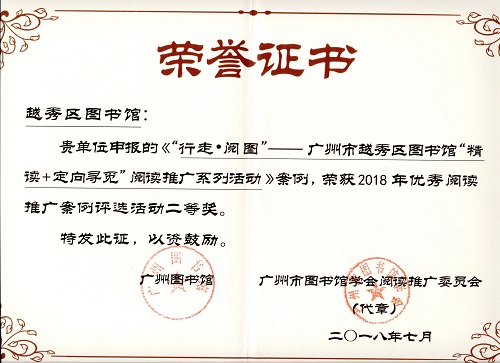 荣誉证书
越秀区图书馆：
贵单位申报的《“行走·阅图”——广州市越秀区图书馆“精
读+定向寻觅”阅读推广系列活动》案例，荣获2018年优秀阅读
推广案例评选活动二等奖。
特发此证，以资鼓励。
广州图书馆
广州市图书馆学会阅读推广委员会
（代章）
二〇一八年七月